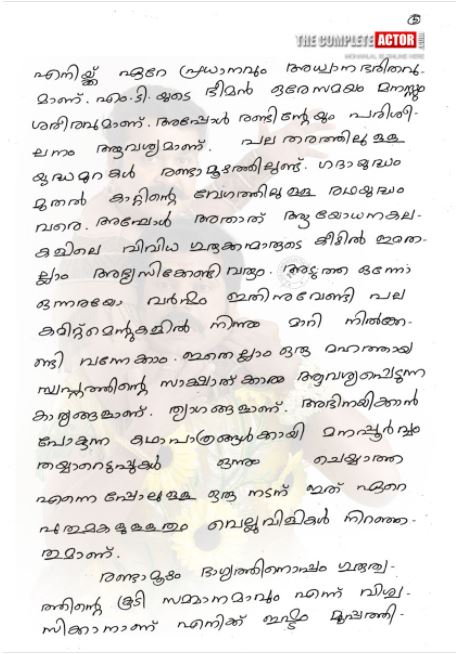 5
THE COMPLETE ACTOR
എനിയ്ക്ക് ഏറേ പ്രധാനവും അധ്വാനഭരിതവു-
മാണ്. എം.ടി.യുടെ ഭീമൻ ഒരേസമയം മനസ്സും
ശരീരവുമാണ്. അപ്പോൾ രണ്ടിന്റേയും പരിശീ-
ലനം ആവശ്യമാണ്. പലതരത്തിലുള്ള
യുദ്ധമുറകൾ രണ്ടാമൂഴത്തിലുണ്ട്. ഗദായുദ്ധം
മുതൽ കാറ്റിന്റെ വേഗത്തിലുള്ള രഥയുദ്ധം
വരെ. അപ്പോൾ അതാത് ആയോധനകല-
കളിലെ വിവിധ ഗുരുക്കന്മാരുടെ കീഴിൽ ഇതെ-
ല്ലാം അഭ്യസിക്കേണ്ടി വരും. അടുത്ത ഒന്നോ
ഒന്നരയോ വർഷം ഇതിനുവേണ്ടി പല
കമിറ്റ്മെന്റുകളിൽ നിന്നും മാറി നിൽക്കേ-
ണ്ടി വന്നേക്കാം. ഇതെല്ലാം ഒരു മഹത്തായ
സ്വപ്നത്തിന്റെ സാക്ഷാത്കാരം ആവശ്യപ്പെടുന്ന
കാര്യങ്ങളാണ്. ത്യാഗങ്ങളാണ്. അഭിനയിക്കാൻ
പോകുന്ന കഥാപാത്രങ്ങൾക്കായി മനപൂർവ്വം
തയ്യാറെടുപ്പുകൾ ഒന്നും ചെയ്യാത്ത
എന്നെപ്പോലുള്ള ഒരു നടന് ഇത് ഏറെ
പുതുമകളുള്ളതും വെല്ലുവിളികൾ നിറഞ്ഞ-
തുമാണ്.
രണ്ടാമൂഴം ഭാഗ്യത്തിനൊപ്പം ഗുരുത്വ-
ത്തിന്റെ കൂടി സമ്മാനമാവും എന്ന് വിശ്വ-
സിക്കാനാണ് എനിക്ക് ഇഷ്ടം. മുപ്പത്തി-